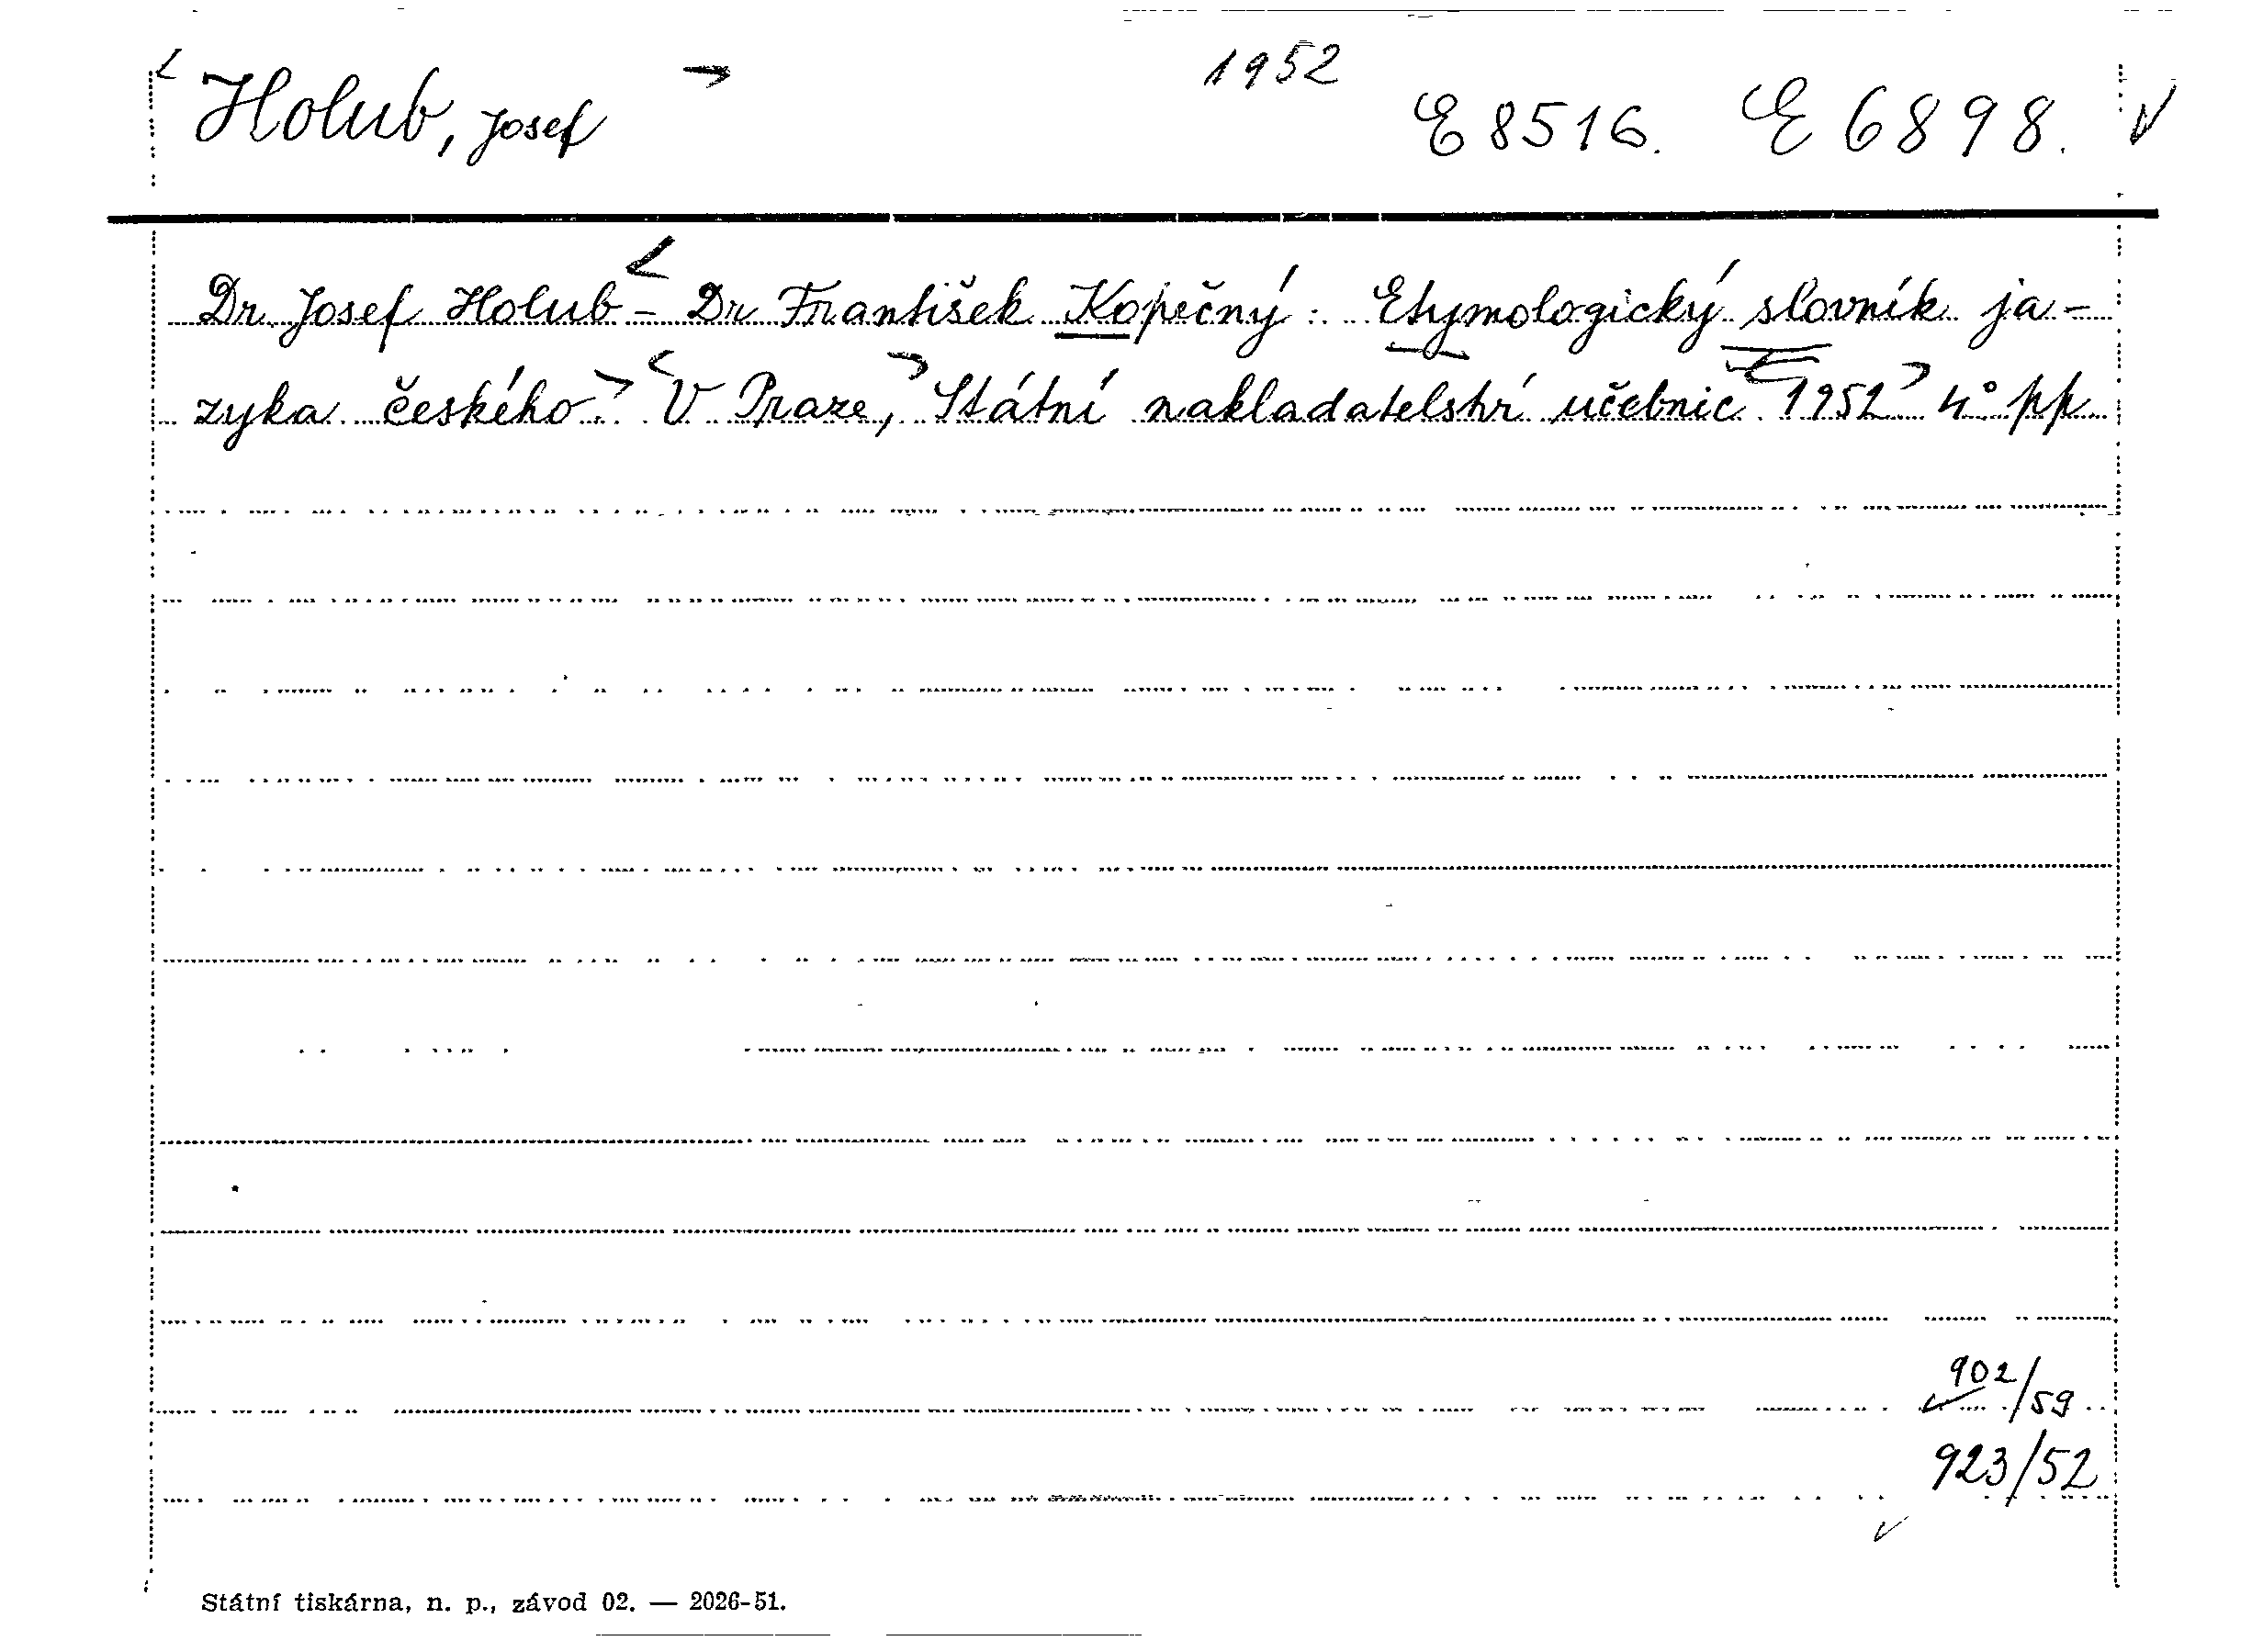 1952
Holub, Josef E 8516. E 6898.
Dr. Josef Holub – Dr František Kopečný: Etymologický slovník ja-
zyka českého. V Praze, Státní nakladatelství učebnic 1952 4° pp
902/59
923/52
Státní tiskárna, n. p., závod 02. — 2026-51.